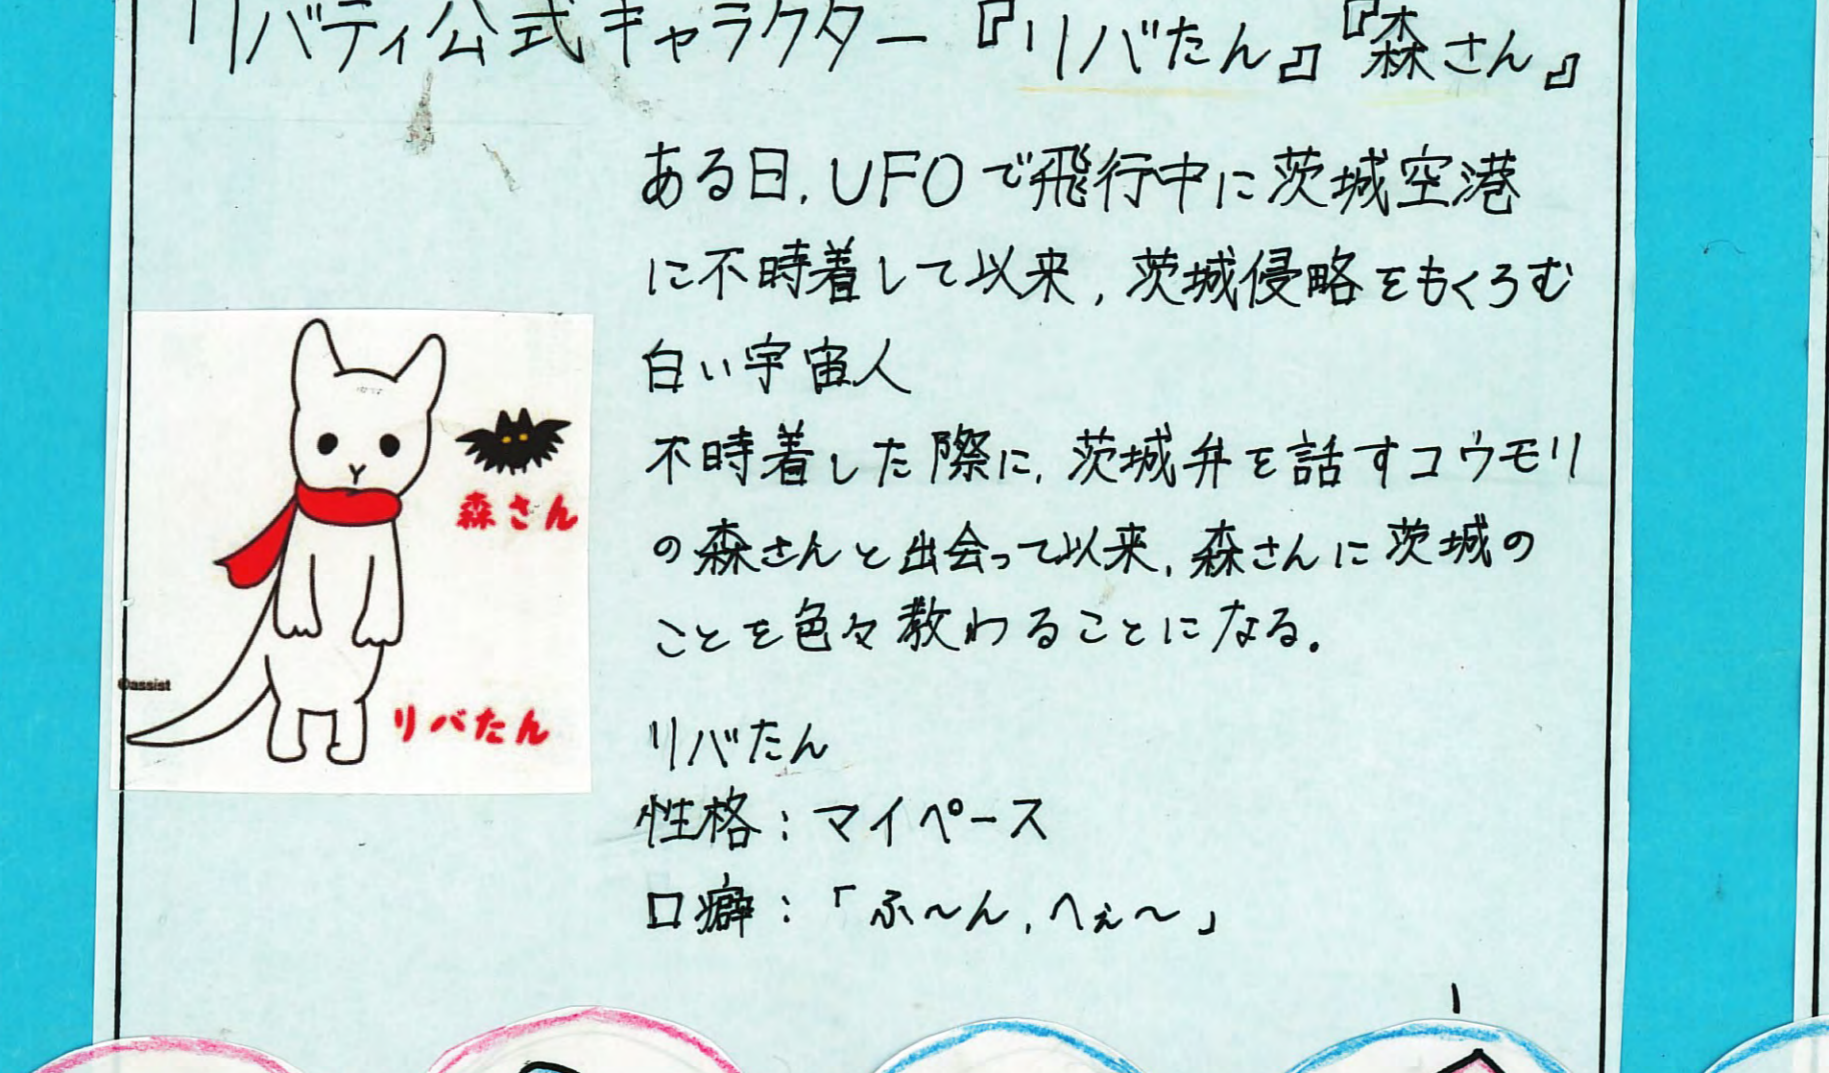 リバティ公式キャラクター『リバたん』『森さん』
ある日,UFOで飛行中に茨城空港
に不時着して以来,茨城侵略をもくろむ
白い宇宙人
不時着した際に,茨城弁を話すコウモリ
の森さんと出会って以来,森さんに茨城の
ことを色々教わることになる。
森さん
©assist
リバたん
リバたん
性格:マイペース
口癖:「ふ〜ん,へぇ〜」